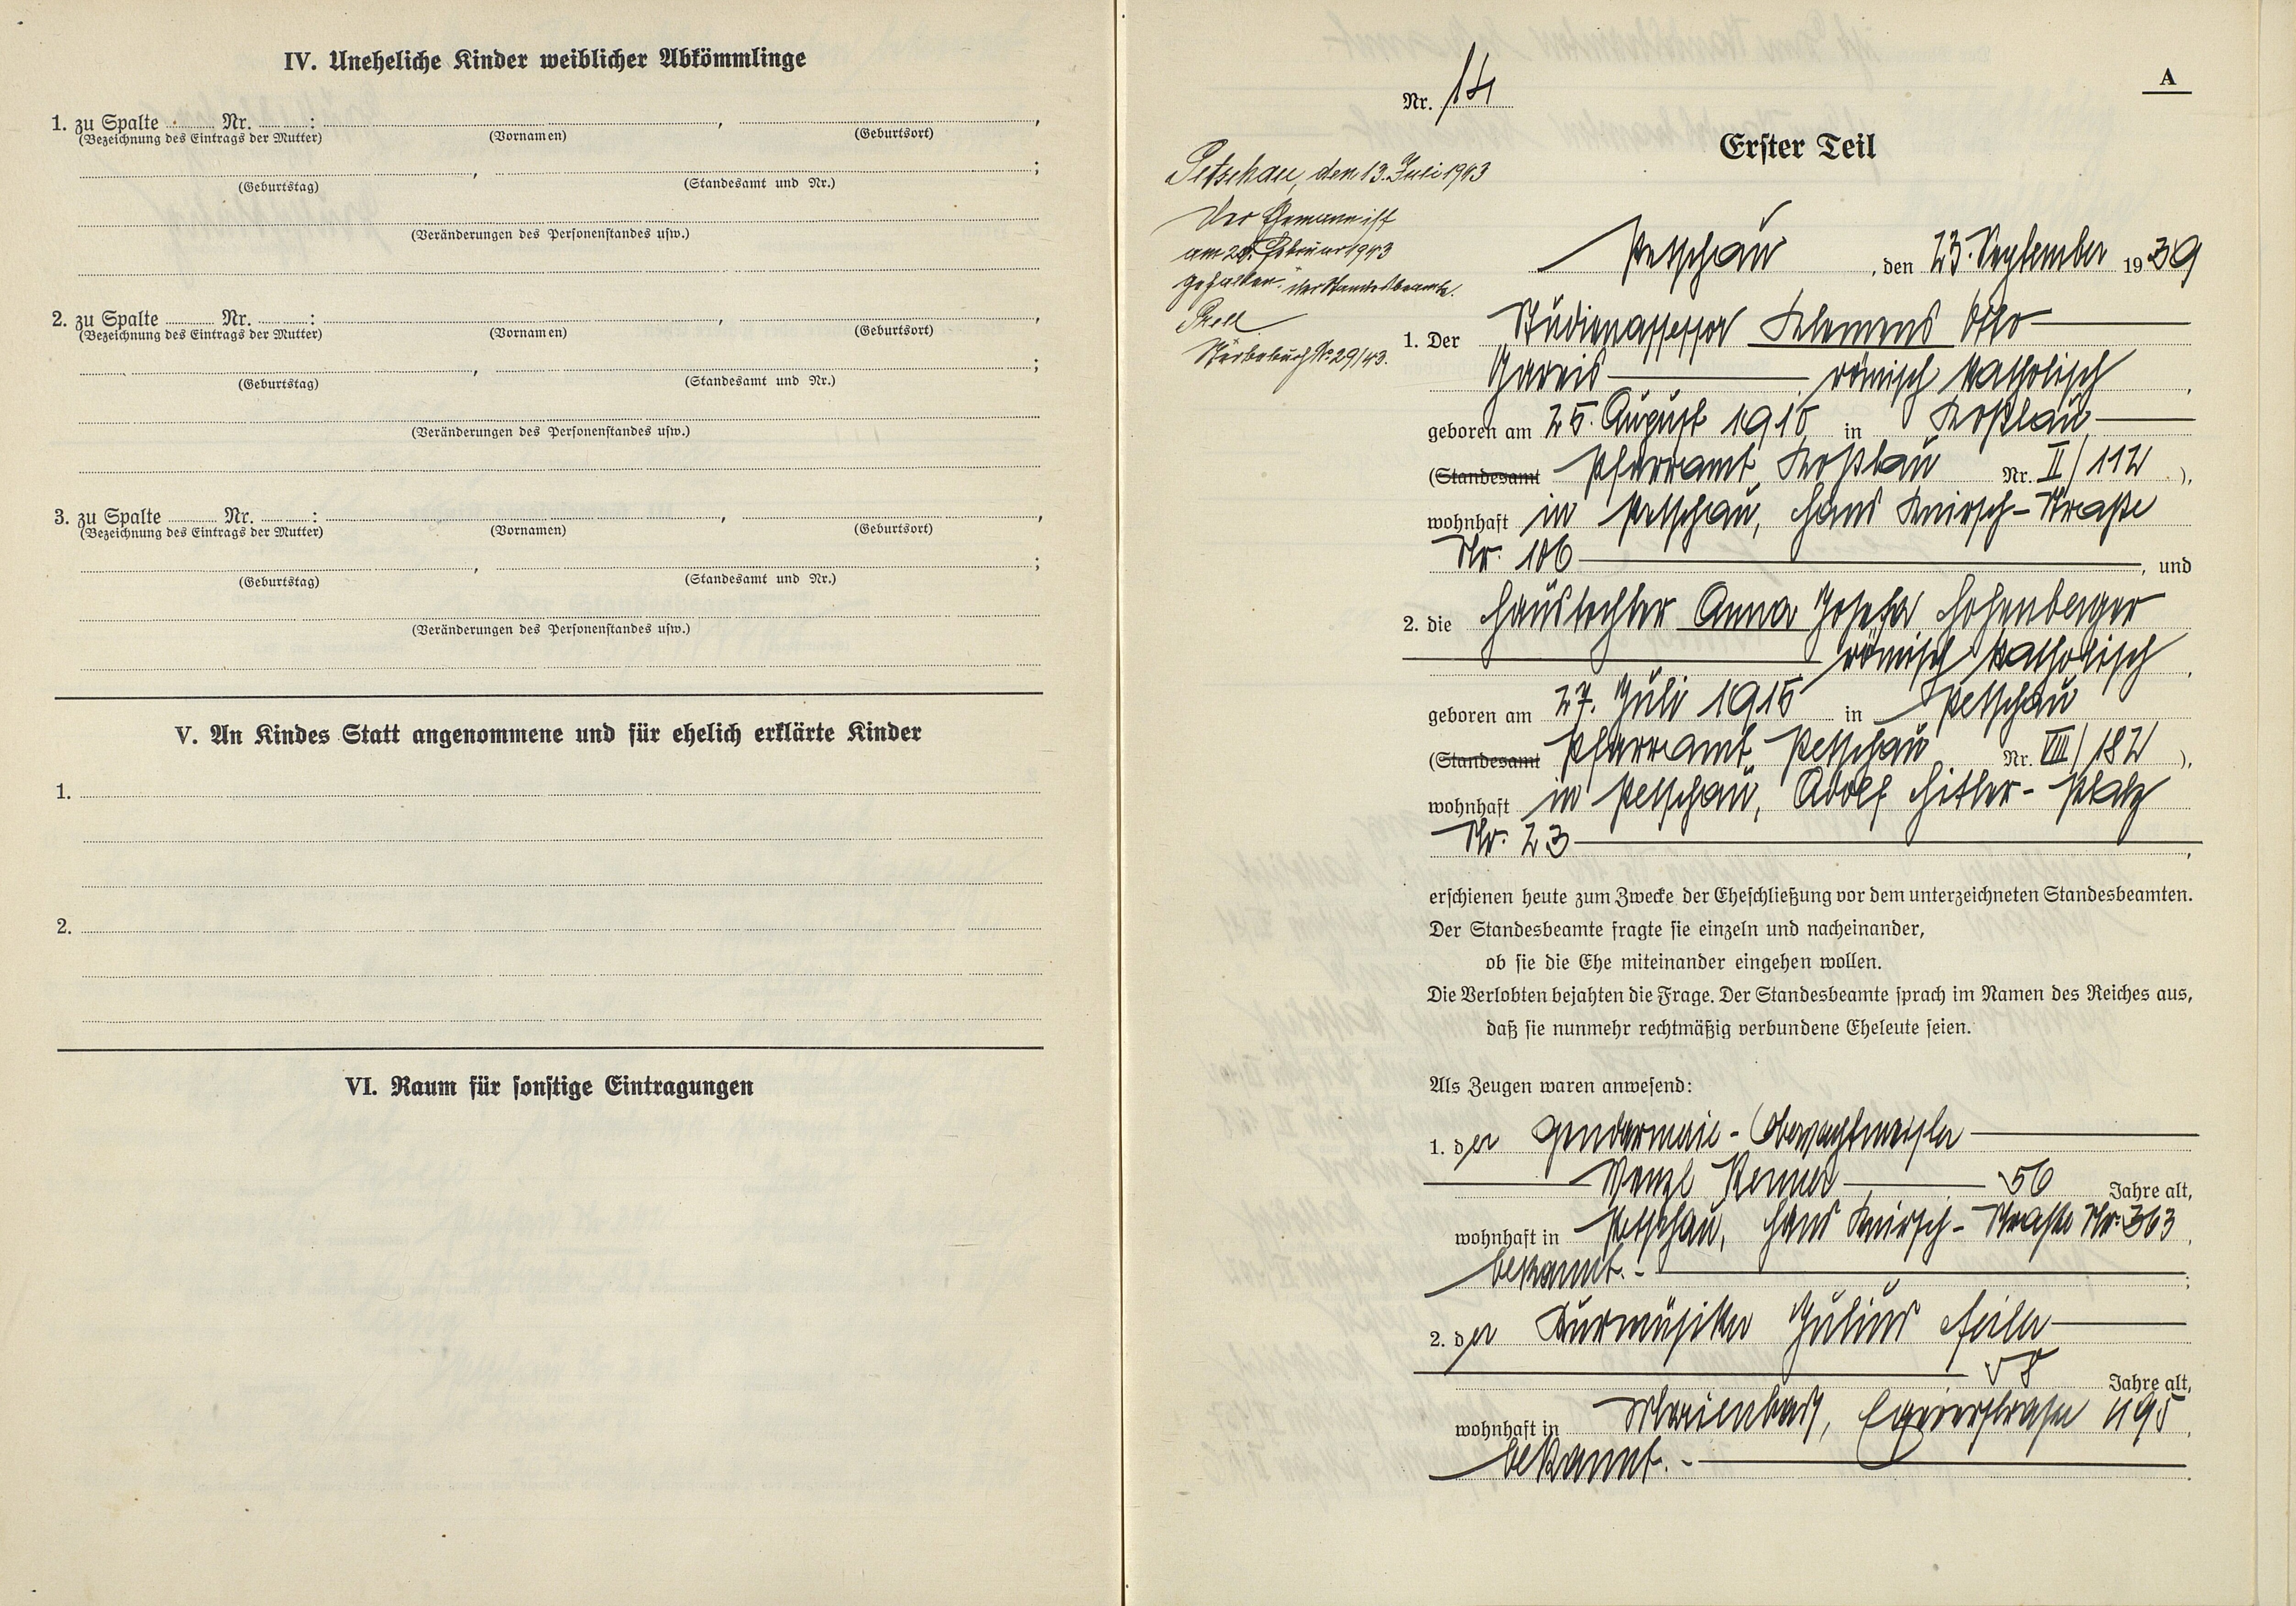 IV. Uneheliche Kinder weiblicher Abkömmlinge
1. zu Spalte Nr. : , ,
(Bezeichnung des Eintrags der Mutter) (Vornamen) (Geburtsort)
, ;
(Geburtstag) (Standesamt und Nr.)
(Veränderungen des Personenstandes usw.)
2. zu Spalte Nr. : , ,
(Bezeichnung des Eintrags der Mutter) (Vornamen) (Geburtsort)
, ;
(Geburtstag) (Standesamt und Nr.)
(Veränderungen des Personenstandes usw.)
3. zu Spalte Nr. : , ,
(Bezeichnung des Eintrags der Mutter) (Vornamen) (Geburtsort)
, ;
(Geburtstag) (Standesamt und Nr.)
(Veränderungen des Personenstandes usw.)
V. An Kindes Statt angenommene und für ehelich erklärte Kinder
1.
2.
VI. Raum für sonstige Eintragungen
A
Nr. 14
Erster Teil
Petschau, den 13. Juli 1943
Der Ehemann ist
am Februar 1943
gefallen. der Standesbeamte.
Sterbebuch No 29/43.
Petschau, den 23. September 1939
1. Der Studienassessor Klemens Otto
Gareis römisch katholisch,
geboren am 25. August 1910 in Koßlau
(Standesamt Pfarramt Koßlau Nr. II/112),
wohnhaft in Petschau, Hans Knirsch-Straße
Nr. 106, und
2. die Haustochter Anna Josefa Hohenberger
römisch katholisch,
geboren am 27. Juli 1915 in Petschau
(Standesamt Pfarramt Petschau Nr. VIII/182),
wohnhaft in Petschau, Adolf Hitler-Platz
Nr. 23,
erschienen heute zum Zwecke der Eheschließung vor dem unterzeichneten Standesbeamten.
Der Standesbeamte fragte sie einzeln und nacheinander,
ob sie die Ehe miteinander eingehen wollen.
Die Verlobten bejahten die Frage. Der Standesbeamte sprach im Namen des Reiches aus,
daß sie nunmehr rechtmäßig verbundene Eheleute seien.
Als Zeugen waren anwesend:
1. der Gendarmerie-Oberwachtmeister
Wenzl Renner 56 Jahre alt,
wohnhaft in Petschau, Hans Knirsch-Straße Nr. 363,
bekannt.-;
2. der Kurmusiker Julius Feiler
58 Jahre alt,
wohnhaft in Marienbad, Egererstraße 495,
bekannt.-